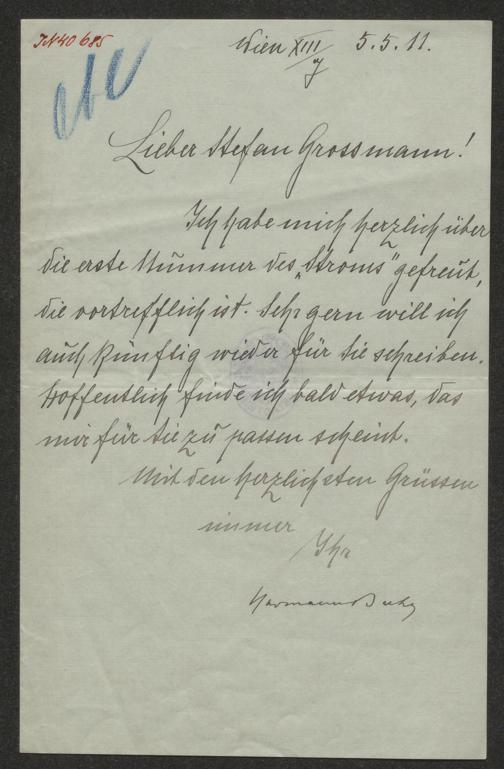 IN 40 685
Wien XIII/7 5.5.11.
Lieber Stefan Grossmann!
Ich habe mich herzlich über
die erste Nummer des „Stroms" gefreut,
die vortrefflich ist. Sehr gern will ich
auch künftig wieder für Sie schreiben.
Hoffentlich finde ich bald etwas, das
mir für Sie zu passen scheint.
Mit den herzlichsten Grüssen
immer
Ihr
Hermann Bahr